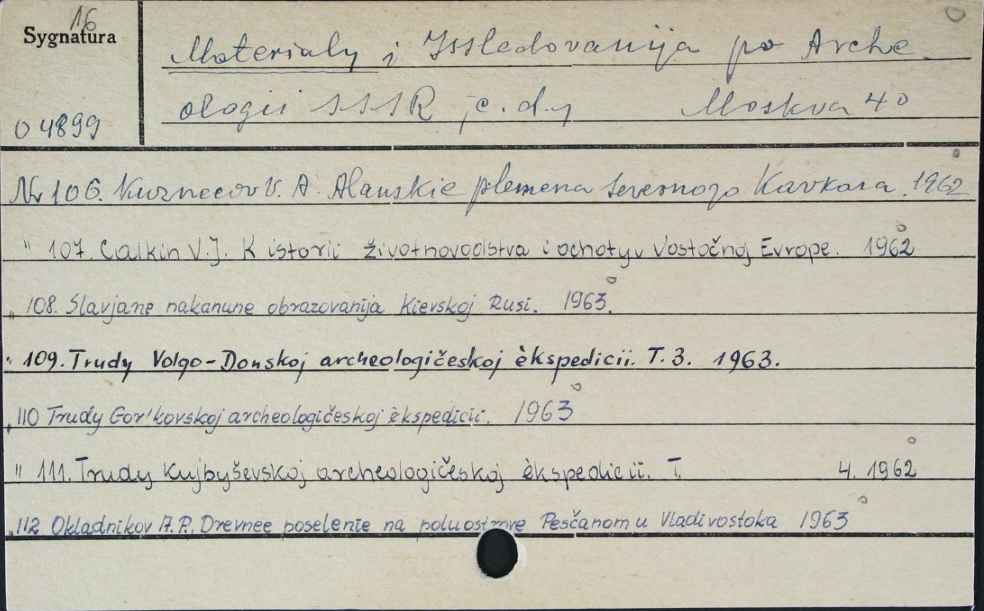 16
Sygnatura
Materialy i Issledovanija po Arche
ologii SSSR, c.d.,
Moskva 40
0 4899
Nr 106. Kuznecov V. A. Alanskie plemena severnogo Kavkaza. 1962
" 107. Calkin V.J. K istorii životnovodstva i ochoty v Vostočnoj Evrope. 1962
" 108. Slavjane nakanune obrazovanija Kievskoj Rusi. 1963.
" 109. Trudy Volgo-Donskoj archeologičeskoj èkspedicii. T. 3. 1963.
" 110 Trudy Gor'kovskoj archeologičeskoj èkspedicii. 1963
" 111. Trudy Kujbyševskoj archeologičeskoj èkspedicii. T. 4. 1962
" 112 Okladnikov A.P. Drevnee poselenie na poluostrove Pesčanom u Vladivostoka 1963